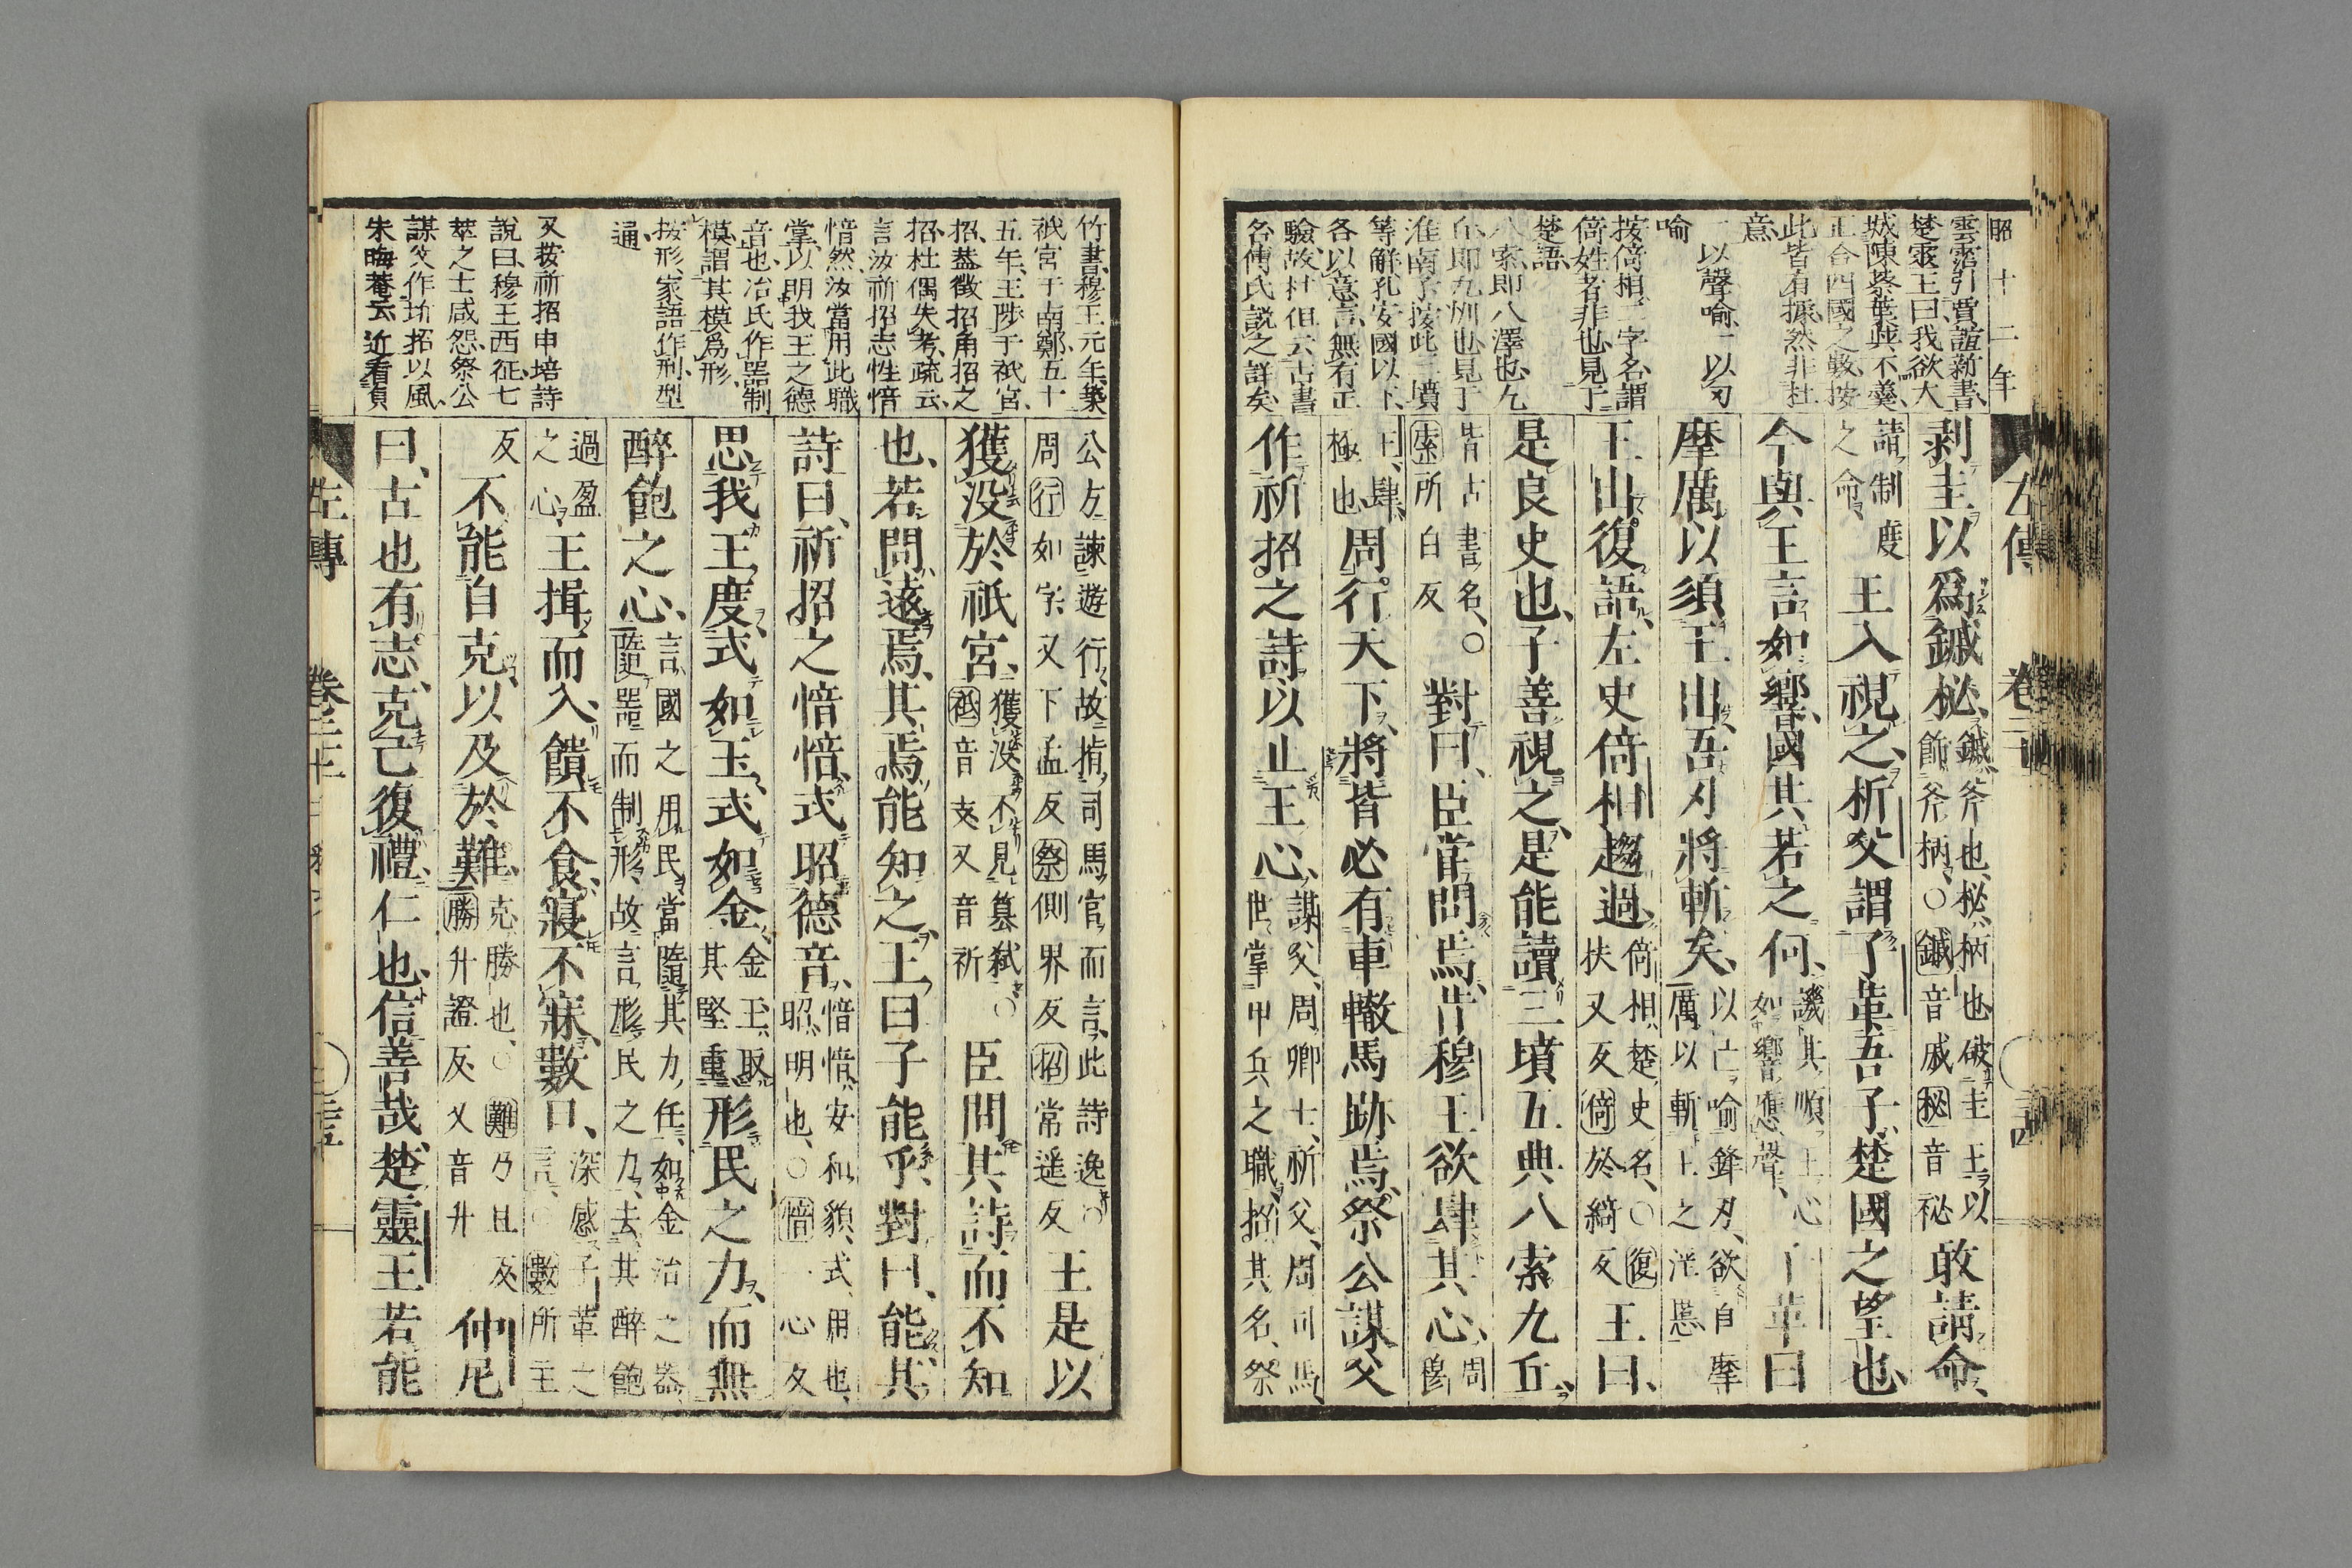 昭十二年
左傳 卷二十二 三十四
雲霑引賈誼新書
楚靈王曰我欲大
城陳蔡葉與不羹
正合四國之數按
此皆有據然非杜
意
一以聲喩一以刃
喩
按倚相二字名謂
倚姓者非也見于
楚語
八索即八澤也九
丘即九州也見于
淮南子按此三墳
等解孔安國以下
各以意言無有正
驗故杜但云古書
名傅氏說之詳矣
剥圭以爲鏚柲、鏚斧也柲柄也破圭玉以飾斧柄○鏚音戚柲音祕敢請命、
請制度之命王入視之析父謂子革吾子楚國之望也、
今與王言如響國其若之何、譏其順王心如響應聲子革曰
摩厲以須王出吾刃將斬矣、以己喻鋒刃欲自摩厲以斬王之淫慝
王出復語左史倚相趨過、倚相楚史名○復扶又反倚於綺反王曰、
是良史也、子善視之、是能讀三墳五典八索九丘、
皆古書名、○索所白反對曰、臣嘗問焉昔穆王欲肆其心、周穆
王、肆極也周行天下、將皆必有車轍馬跡焉祭公謀父
作祈招之詩以止王心、謀父周卿士祈父周司馬世掌甲兵之職招其名祭
竹書穆王元年築
祇宮于南鄭五十
五年王陟于祇宮
招蓋徵招角招之
招杜偶失考疏云
言汝祈招志性愔
愔然汝當用此職
掌以明我王之德
音也冶氏作器制
模謂其模爲形
按形家語作刑型
通
又按祈招申培詩
說曰穆王西征七
萃之士咸怨祭公
謀父作祈招以風
朱晦菴云近看貟
公方諫遊行故指司馬官而言此詩逸○周行如字又下孟反祭側界反招常遥反王是以
獲没於祇宮、獲没不見簒弑○祗音支又音祈臣問其詩而不知
也、若問遠焉、其焉能知之、王曰子能乎、對曰、能其
詩曰、祈招之愔愔式昭德音、愔愔安和貌式用也昭明也○愔一心反
思我王度式如玉式如金、金玉取其堅重形民之力、而無
醉飽之心、言國之用民當隨其力任如金冶之器隨器而制形故言形民之力去其醉飽
過盈之心王揖而入、饋不食、寢不寐數日、深感子革之言○數所主
反不能自克、以及於難、克勝也○難乃旦反勝升證反又音升仲尼
曰、古也有志、克己復禮、仁也信善哉楚靈王若能
左傳 卷二十二 三十五